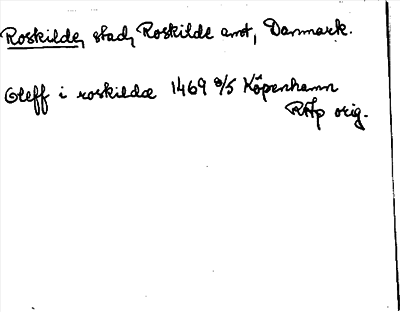 Roskilde, stad, Roskilde amt, Danmark.
Oleff i roskildæ 1469 8/5 Köpenhamn
RAp orig.